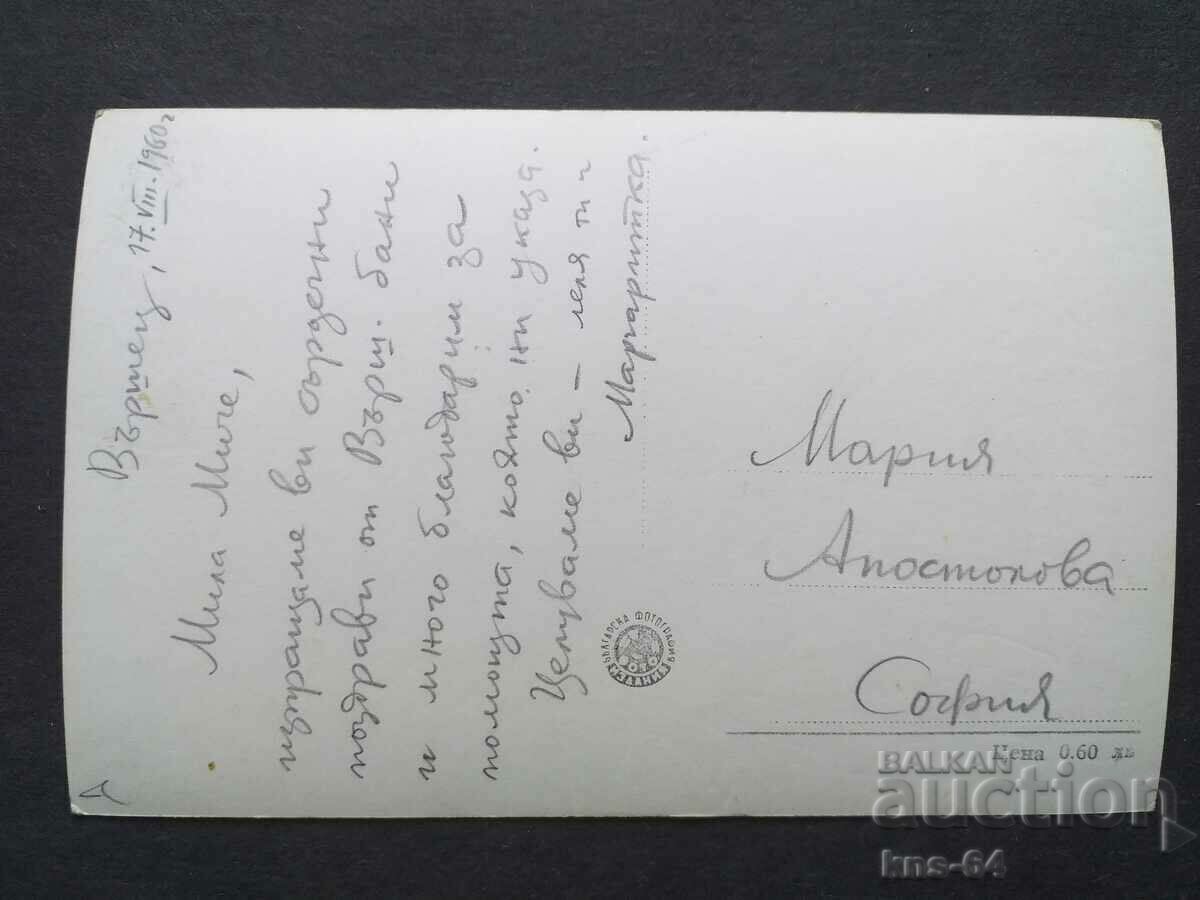 Вършец, 17.VIII.1960г
Мила Миче,
изпращаме ви сърдечни
поздрави от Върш. бани
и много благодарим за
помощта, която ни указа.
Целуваме ви – леля ти и
Маргаритка.
Мария
Апостолова
София
БЪЛГАРСКА ФОТОГРАФИЯ
ИЗДАНИЯ
Цена 0.60 лв
BALKAN
auction
kns-64